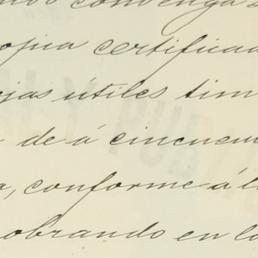 convenga
opia certificad
ojas útiles tim
de á cincuen
a, conforme á l
obrando en lo